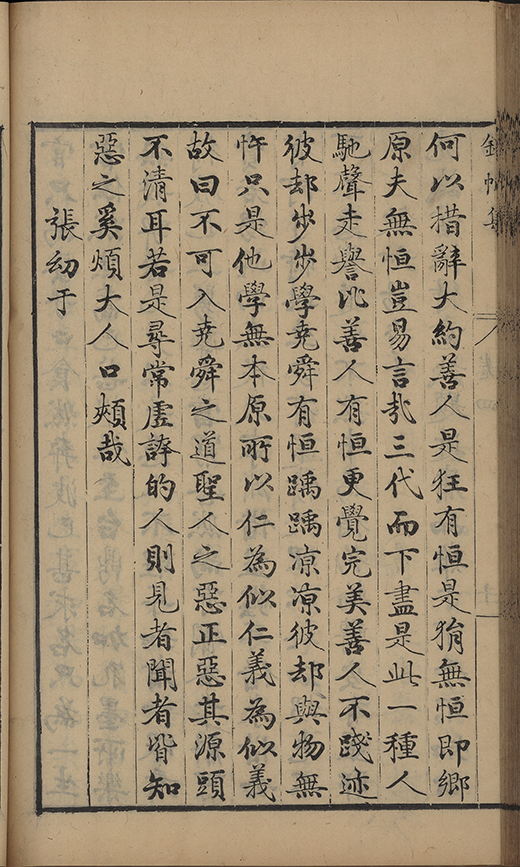 何以措辭大約善人是狂有恒是狷無恒即鄉
原夫無恒豈易言哉三代而下盡是此一種人
馳聲走譽比善人有恒更覺完美善人不踐迹
彼却步步學堯舜有恒踽踽凉凉彼却與物無
忤只是他學無本原所以仁為似仁義為似義
故曰不可入堯舜之道聖人之惡正惡其源頭
不清耳若是尋常虛誇的人則見者聞者皆知
惡之奚煩大人口頰哉
張幼于